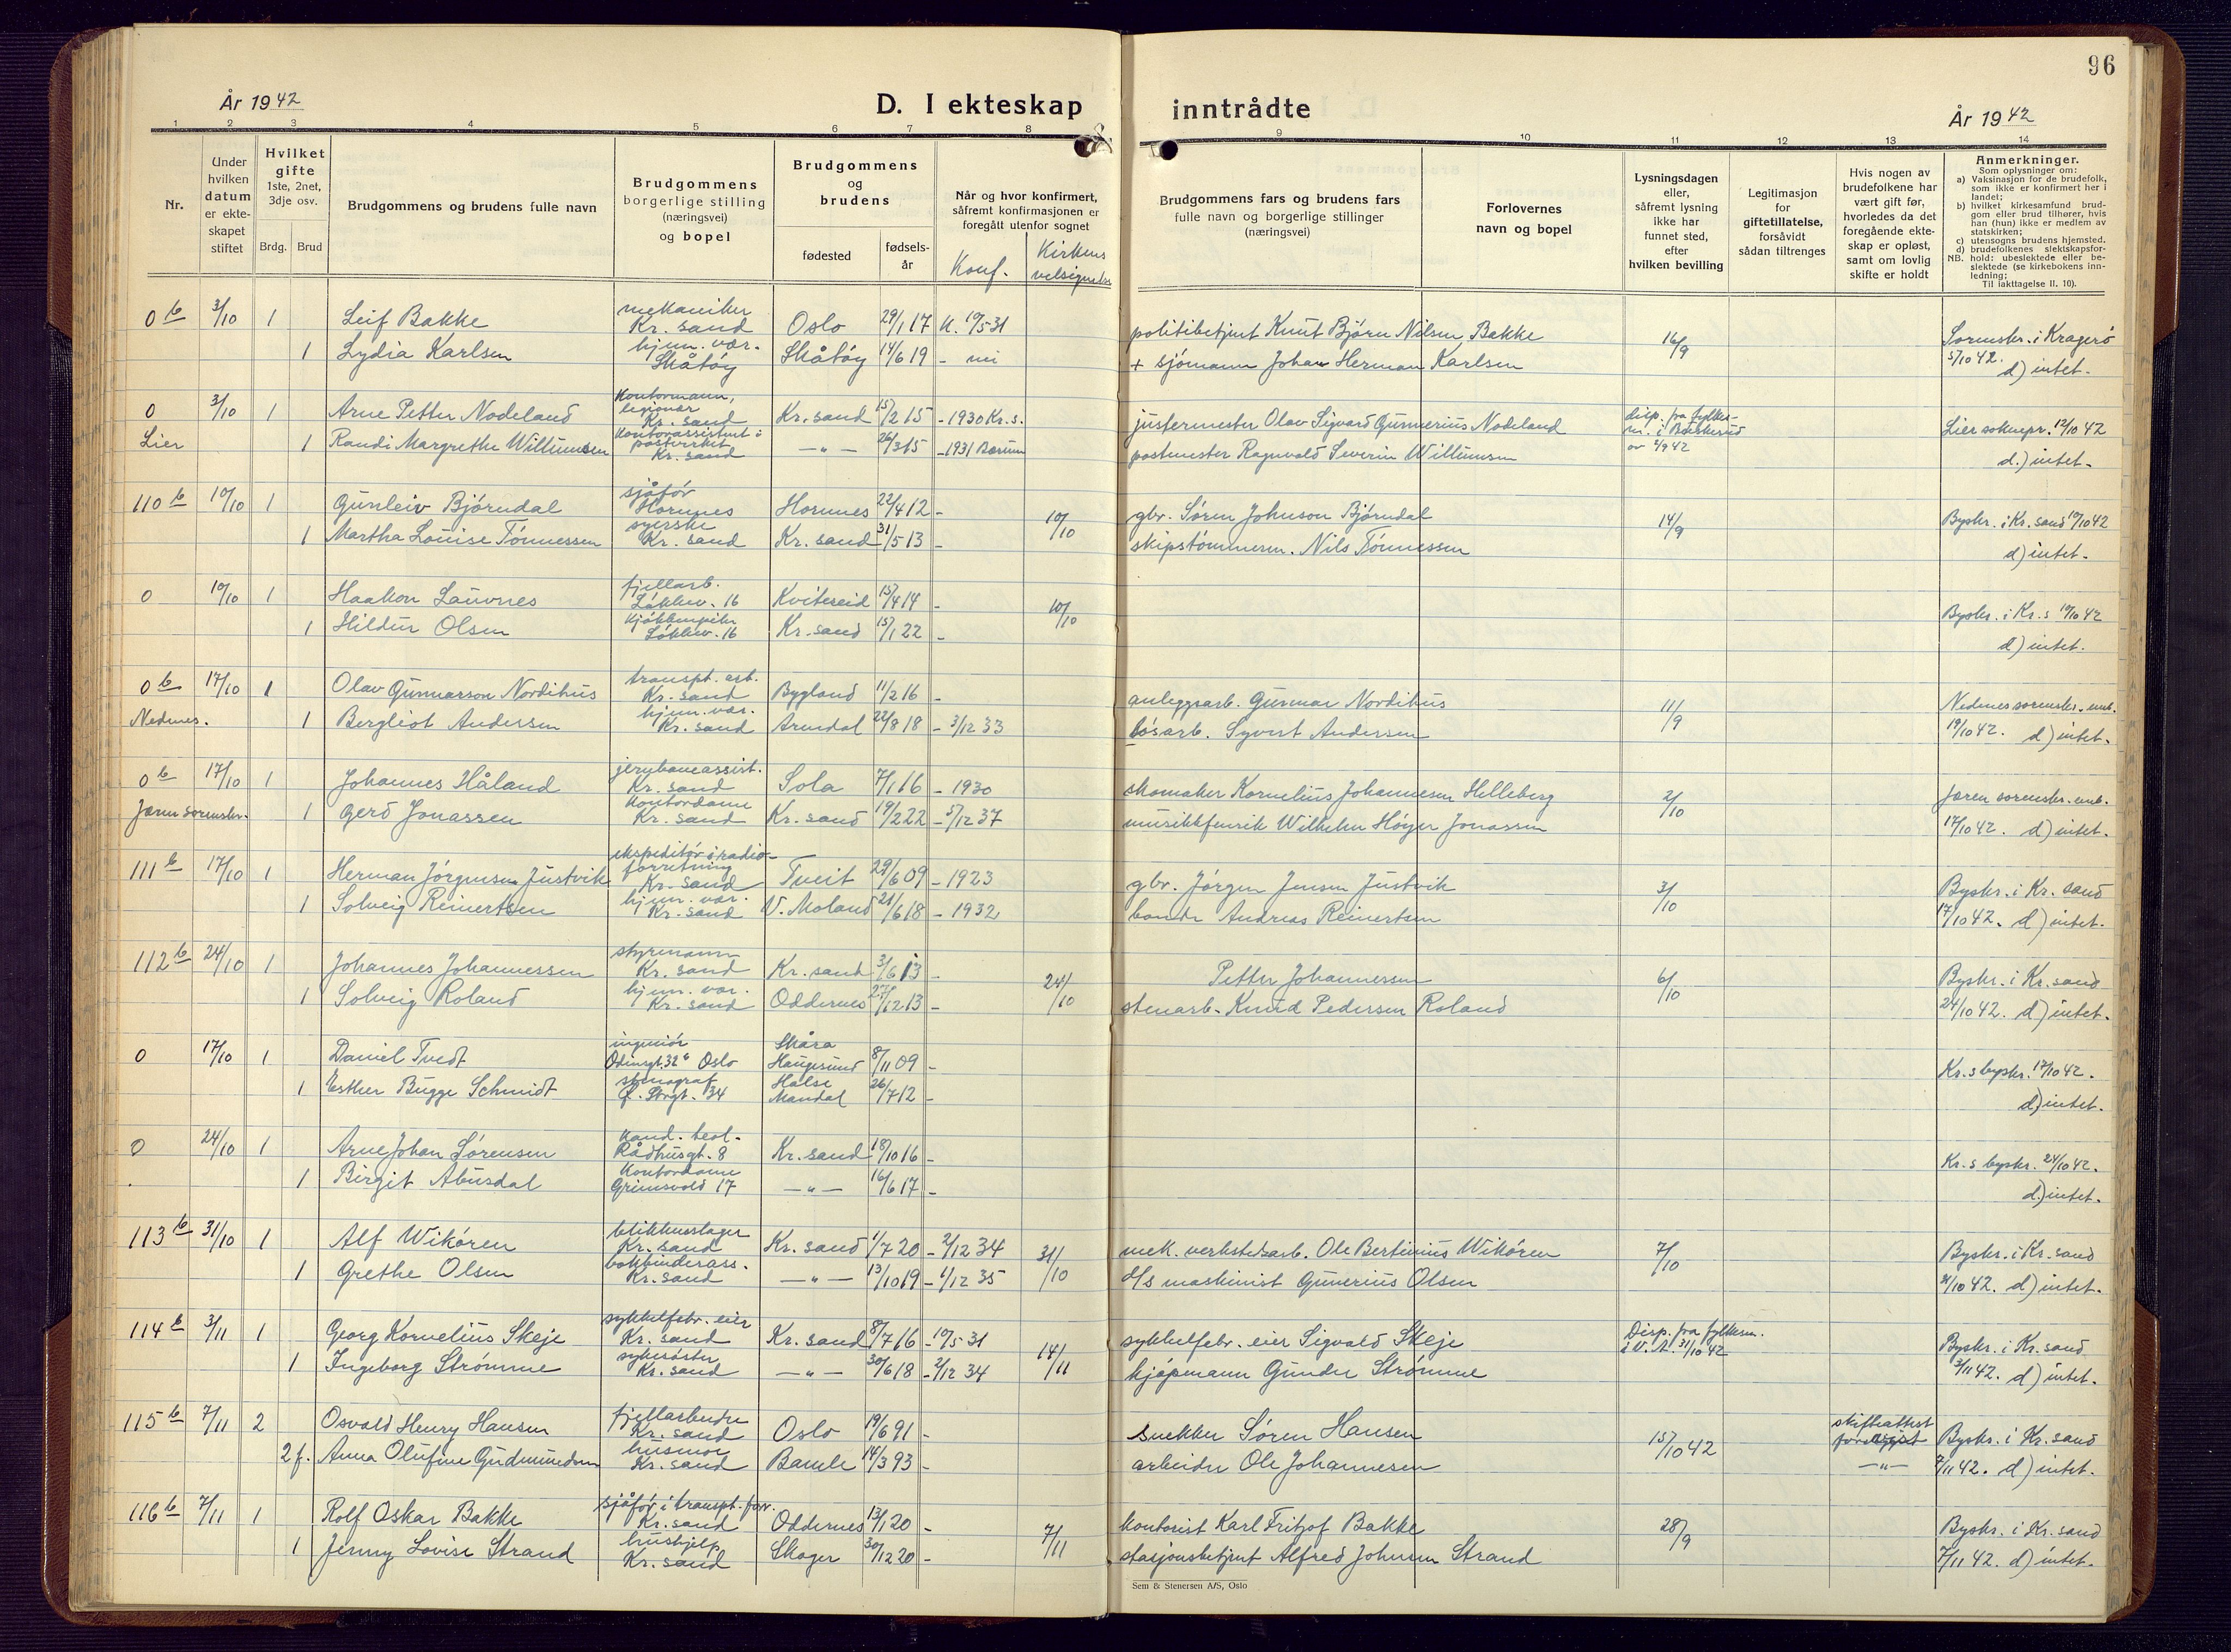 96
År 1942
D. I ekteskap
inntrådte
År 1942
1 2 3 4 5 6 7 8 9 10 11 12 13 14
Nr.
Under hvilken datum er ekteskapet stiftet
Hvilket gifte 1ste, 2net, 3dje osv.
Brdg. Brud
Brudgommens og brudens fulle navn
Brudgommens borgerlige stilling (næringsvei) og bopel
Brudgommens og brudens
fødested
fødsels-år
Når og hvor konfirmert, såfremt konfirmasjonen er foregått utenfor sognet
Konf.
Kirkens velsignelse
Brudgommens fars og brudens fars fulle navn og borgerlige stillinger (næringsvei)
Forlovernes navn og bopel
Lysningsdagen eller, såfremt lysning ikke har funnet sted, efter hvilken bevilling
Legitimasjon for giftetillatelse, forsåvidt sådan tiltrenges
Hvis nogen av brudefolkene har vært gift før, hvorledes da det foregående ekteskap er opløst, samt om lovlig skifte er holdt
Anmerkninger.
Som oplysninger om:
a) Vaksinasjon for de brudefolk, som ikke er konfirmert her i landet;
b) hvilket kirkesamfund brudgom eller brud tilhører, hvis han (hun) ikke er medlem av statskirken;
c) utensogns brudens hjemsted.
d) brudefolkenes slektskapsforhold: ubeslektede eller beslektede (se kirkebokens innledning;
NB.
Til iakttagelse II. 10).
0 b 3/10 1 Leif Bakke mekaniker Kr. sand Oslo 29/1 17 K. 10/5 31 politibetjent Knut Bjørn Nilsen Bakke 16/9 Sorenskr. i Kragerø
1 Lydia Karlsen hjem. vær. Skåtøy Skåtøy 14/6 19 - nei + sjömann Johan Herman Karlsen 5/10 42. d) intet.
0 3/10 1 Arne Petter Nodeland Kontormann, legionær Kr. sand Kr. sand 15/2 15 - 1930 Kr. s. justermester Olav Sigvard Gunnerius Nodeland disp. fra fylkesm. i Buskerud av 2/9 42 Lier soknepr. 12/10 42
Lier 1 Randi Margrethe Willumsen Kontorassistent i postverket Kr. sand - " - 26/3 15 - 1931 Bærum postmester Ragnvald Severin Willumsen d.) intet.
110 b 10/10 1 Gunleiv Bjørndal sjåför Hornnes Hornnes 22/4 12 - 10/10 gbr. Søren Johnson Bjørndal 14/9 Byskr. i Kr. sand 10/10 42
1 Martha Louise Tønnessen syerske Kr. sand Kr. sand 31/5 13 - skipstømmerm. Nils Tønnessen d) intet.
0 10/10 1 Haakon Lauvnes fjellarb. Løkkev. 16 Kviteseid 15/4 14 - 10/10 Byskr. i Kr. s 10/10 42
1 Hildur Olsen Kjøkkenpike Løkkev. 16 Kr. sand 15/1 22 - d) intet.
0 b 17/10 1 Olav Gunnarson Nordihus transpt. arb. Kr. sand Bygland 11/2 16 - anleggsarb. Gunnar Nordihus 11/9 Nedenes sorenskr. emb.
Nedenes. 1 Bergliot Andersen hjem. vær. Kr. sand Arendal 22/8 18 - 3/12 33 løsarb. Syvert Andersen 19/10 42. d) intet.
0 b 17/10 1 Johannes Håland jernbaneassist. Kr. sand Sola 7/1 16 - 1930 skomaker Kornelius Johannesen Helleberg 2/10 Jæren sorenskr. emb.
Jæren sorenskr. 1 Gerd Jonassen Kontordame Kr. sand Kr. sand 19/2 22 - 5/12 37 musikkfenrik Wilhelm Høyer Jonassen 17/10 42. d) intet.
111 b 17/10 1 Herman Jørgensen Justvik ekspeditör i radioforretning Kr. sand Tveit 29/6 09 - 1923 gbr. Jørgen Jensen Justvik 3/10 Byskr. i Kr. sand
1 Solveig Reinertsen hjem. vær. Kr. sand V. Moland 21/6 18 - 1932 bonde Andreas Reinertsen 17/10 42. d) intet.
112 b 24/10 1 Johannes Johannessen styrmann Kr. sand Kr. sand 3/6 13 - 24/10 Petter Johannessen 6/10 Byskr. i Kr. sand
1 Solveig Roland hjem. vær. Kr. sand Oddernes 27/12 13 - stenarb. Knud Pedersen Roland 24/10 42. d) intet.
0 17/10 1 Daniel Tvedt ingeniør Odinsgt. 32 Oslo Skåra Haugesund 8/11 09 - Kr. s byskr. 17/10 42.
1 Esther Bugge Schmidt stenograf Ø. Strgt. 34 Halse Mandal 26/7 12 - d) intet.
0 24/10 1 Arne Johan Sørensen Kand. teol. Rådhusgt. 8 Kr. sand 18/10 16 - Kr. s byskr. 24/10 42.
1 Birgit Abusdal Kontordame Grimsvold 17 - " - 16/6 17 - d.) intet.
113 b 31/10 1 Alf Wikøren blikkenslager Kr. sand Kr. sand 1/7 20 - 2/12 34 31/10 mek. verkstedsarb. Ole Bertinius Wikøren 7/10 Byskr. i Kr. sand
1 Grethe Olsen bokbinderass. Kr. sand - " - 13/10 19 - 1/12 35 d/s maskinist Gunerius Olsen 31/10 42. d) intet.
114 b 3/11 1 Georg Kornelius Skeje sykkelfabr. eier Kr. sand Kr. sand 8/7 16 - 10/5 31 14/11 sykkelfabr. eier Sigvald Skeje Disp. fra fylkesm. i V. A. 31/10 42 Byskr. i Kr. sand
1 Ingeborg Strømme sykesöster Kr. sand - " - 30/6 18 - 2/12 34 kjøpmann Gunder Strømme 3/11 42. d) intet.
115 b 7/11 2 Osvald Henry Hansen fjellarbeider Kr. sand Oslo 19/6 91 - snekker Søren Hansen 15/10 42 skifteattest forevist Byskr. i Kr. sand
2 f. Anna Olufine Gudmundsen husmor Kr. sand Bamle 14/3 93 - arbeider Ole Johannesen - " - 7/11 42. d) intet.
116 b 7/11 1 Rolf Oskar Bakke sjåför i transpt. forr. Kr. sand Oddernes 13/1 20 - 7/11 kontorist Karl Fritjof Bakke 28/9 Byskr. i Kr. sand
1 Jenny Lovise Strand hushjelp Kr. sand Skoger 30/12 20 - stasjonsbetjent Alfred Johnsen Strand 7/11 42. d) intet.
Sem & Stenersen A/S, Oslo